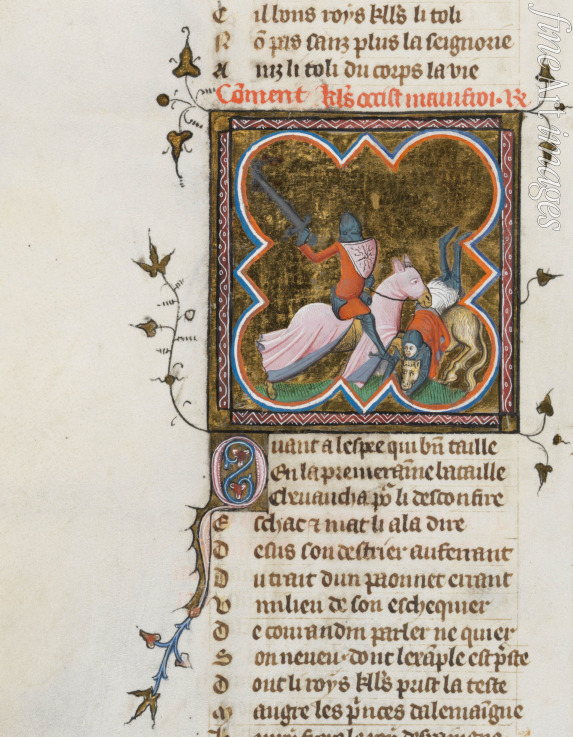 C il bons roys kll's li toli
N õ pas sanz plus la seignorie
A inz li toli du corps la vie
Cõment kll's occist mainfroi. Re
Quant a lespee qui bñ taille
En la premeraĩne bataille
Chevaucha pȏ li desconfire
E schac & mat li ala dire
D esus son destrier auferrant
D u trait dun paonnet errant
U milieu de son eschequier
D e courandin parler ne quier
S on neveu. dont lexãple est p̃ste
D ont li roys kll's prist la teste
M augre les p̃nces dalemaĩgne
fineArtimages